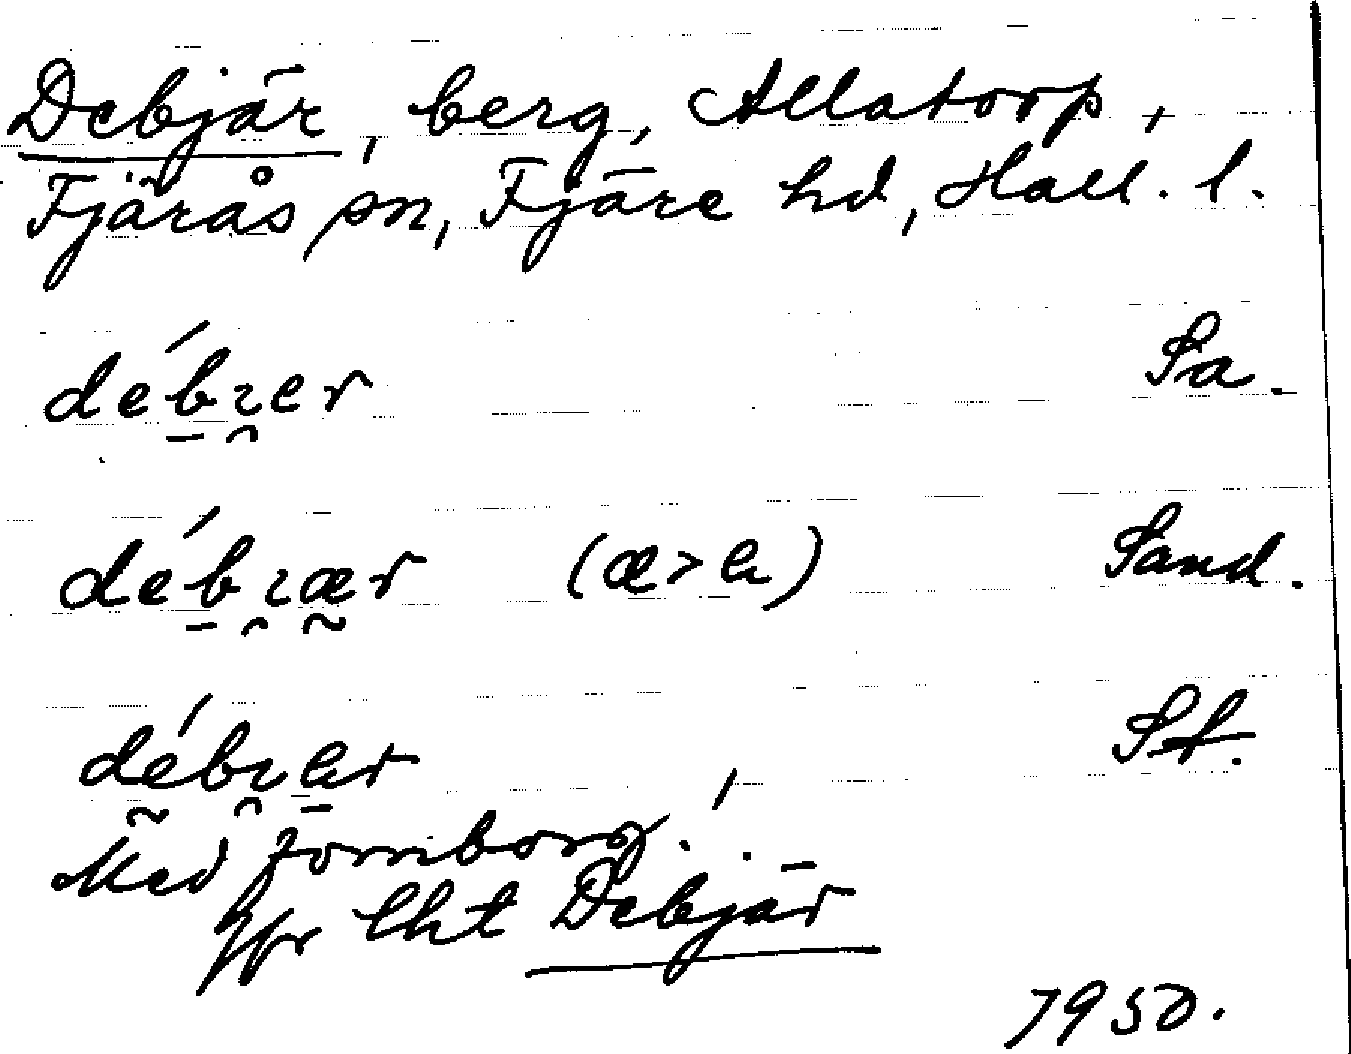 Debjär, berg, Allatorp,
Fjärås sn, Fjäre hd, Hall. l.
débɿer Sa.
débɿær (æ>a) Sand.
débɿar St.
Med fornborg.!
Jfr lht Debjär
1950.